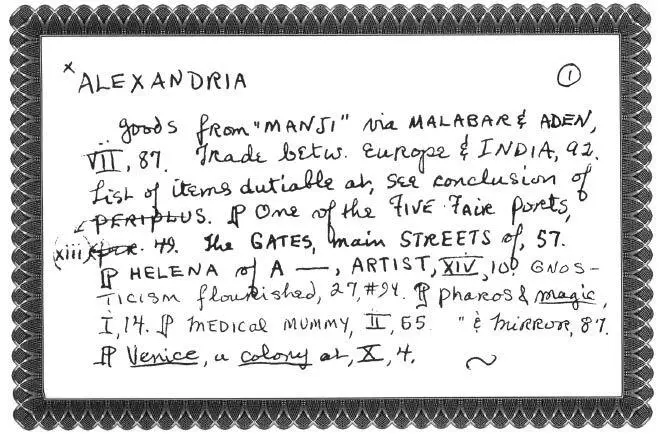 × ALEXANDRIA ①
goods from "MANJI" via MALABAR & ADEN,
VII, 87. Trade betw. Europe & INDIA, 92.
List of items dutiable at, see conclusion of
PERIPLUS. ¶ One of the FIVE FAIR Ports,
(xiii) 49. The GATES, main STREETS of, 57.
¶ HELENA of A —, ARTIST, XIV, 10. GNOS-
TICISM flourished, 27, #94. ¶ pharos & magic,
I, 14. ¶ MEDICAL MUMMY, II, 65. " & MIRROR, 87.
¶ Venice, a colony at, X, 4. ~